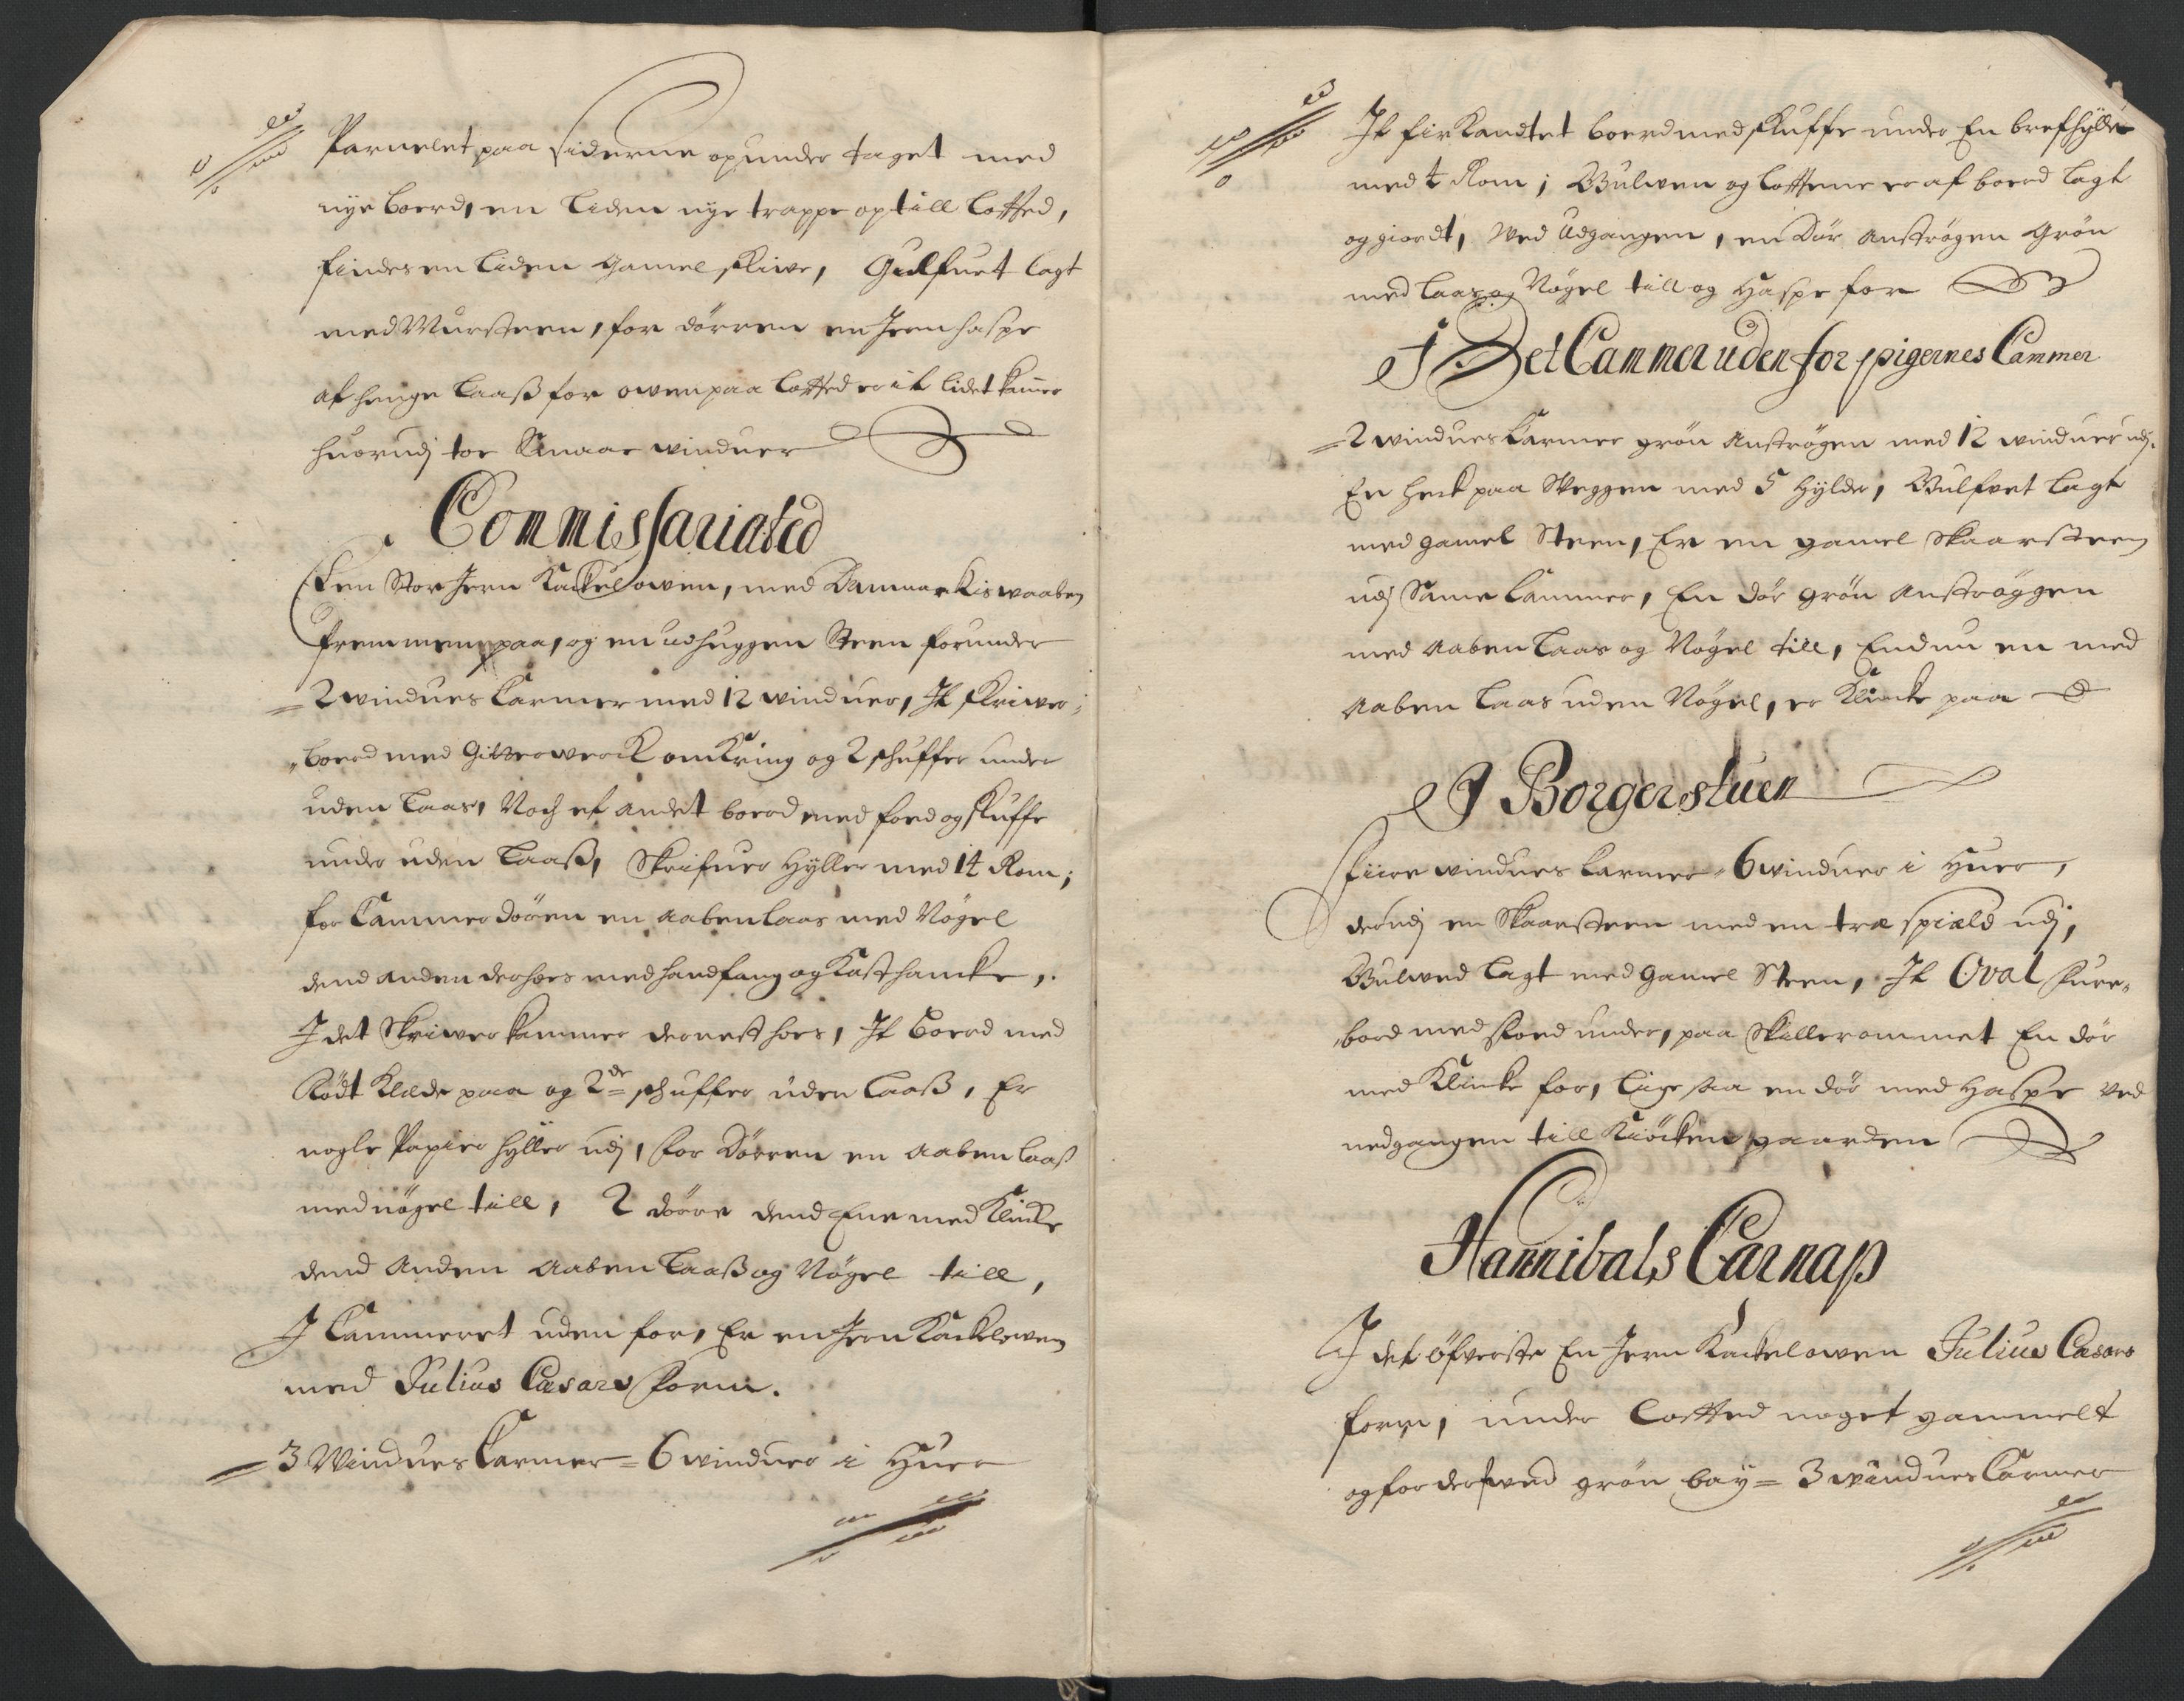 Parnelet paa siderne op under taget med
nye boerd, en liden nye trappe op till lofted,
findes en liden gamel skiwe, Gulfuet lagt
med Muursteen, for dörren en Jern haspe
at henge laaß for owen paa lofted er it lidet kamer
huorudj toe Smaae winduer
Commissariated
Een Stor Jern Kackelowen, med Danmarkis waaben
fremmen paa, og en udhuggen Steen forunder
= 2 windues Carmer med 12 winduer, It skriwer-
boerd med Gitterwerck omkring og 2 schuffer under
uden laas, Noch et andet boerd med foed og skuffe
under uden laaß, Skrifuer Hyller med 14 Rom;
for Cammer dören en aaben laas med Nögel
dend anden derhoes med handfang og Kasthancke,
I det Skriwer kammer dernest hoes, It boerd med
Rödt Klæde paa og 2de schuffer uden laaß, Er
nogle Papier hyller udj, for Dörren en aaben laaß
med nögel till, 2 döerre dend Ene med Klincke
dend Anden Aaben laaß og Nögel till,
I Cammeret uden for, Er en Jern Kackelowen
med Julius Cæsars form.
= 3 Windues Carmer = 6 winduer i Huer
It firkandtet boerd med skuffe under En brefhylde
med 4 Rom; Gulwen og lofftene er af boerd lagt
og giordt, Wed Udgangen, en Dör anströgen Grön
med laas og Nögel till og Haspe for
I Det Cammer uden for pigernes Cammer
= 2 windues Karmer grön Anströgen med 12 winduer udj.
En heck paa Weggen med 5 Hylder, Gulfvet lagt
med gamel Steen, Er en gamel Skaarsteen
udj Same Cammer, En dör grön Anströggen
med Aaben laas og Nögel till, Endnu en med
Aaben laas uden Nögel, er Klincke paa
I Borgerstuen
Fiire windues Carmer = 6 winduer i Huer,
derudj en Skaarsteen med en træ spield udj,
Gulwed lagt med gamel Steen, It Oval fure-
bord med foed under, paa Skillerommet En dör
med Klincke for, lige saa en dör med Haspe wed
nedgangen till Kiöcken gaarden
Hannibals Carnap
I det öfverste En Jern Kackelowen Julius Cæsars
form, under lofted noget gammelt
og forderfwed grön bay = 3 windues Carmer